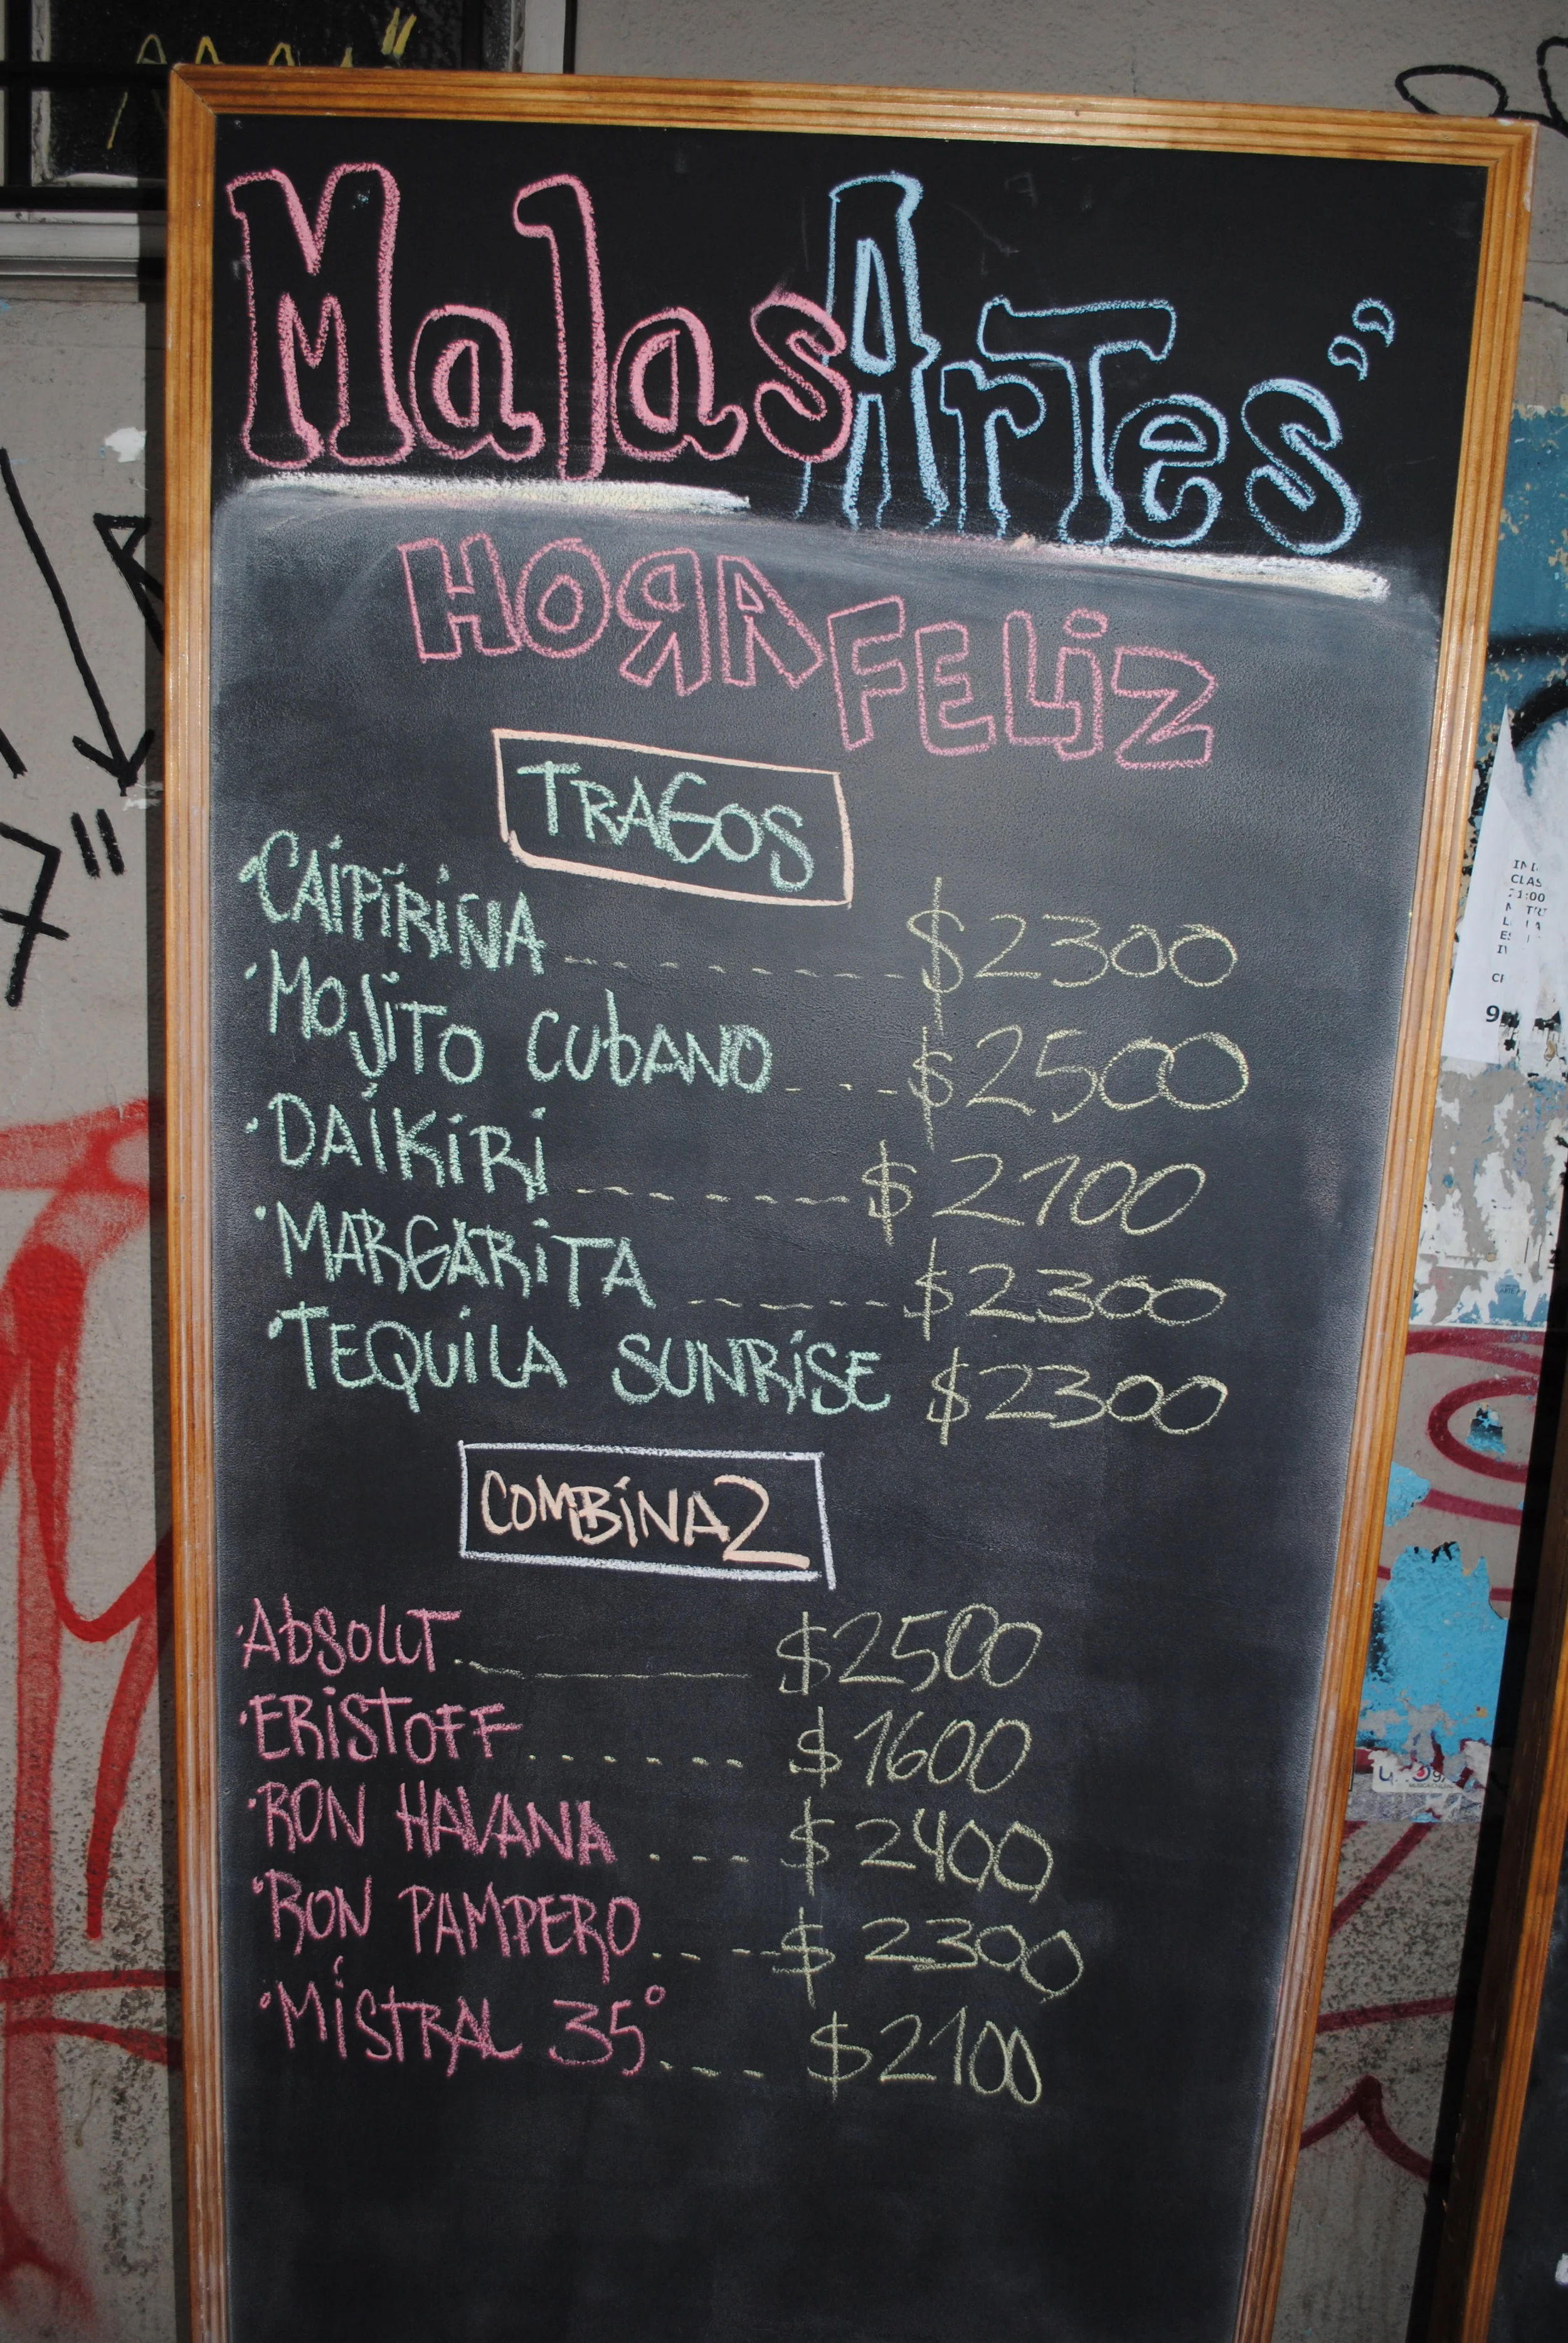 Malas Artes
HORA FELIZ
TRAGOS
·CAIPIRIÑA--------$2300
·MOJITO CUBANO----$2500
·DAIKIRI-------$2100
·MARGARITA------$2300
·TEQUILA SUNRISE $2300
COMBINA2
·Absolut.------$2500
·ERISTOFF.......$1600
·RON HAVANA ...$2400
·RON PAMPERO....$2300
·MISTRAL 35°....$2100